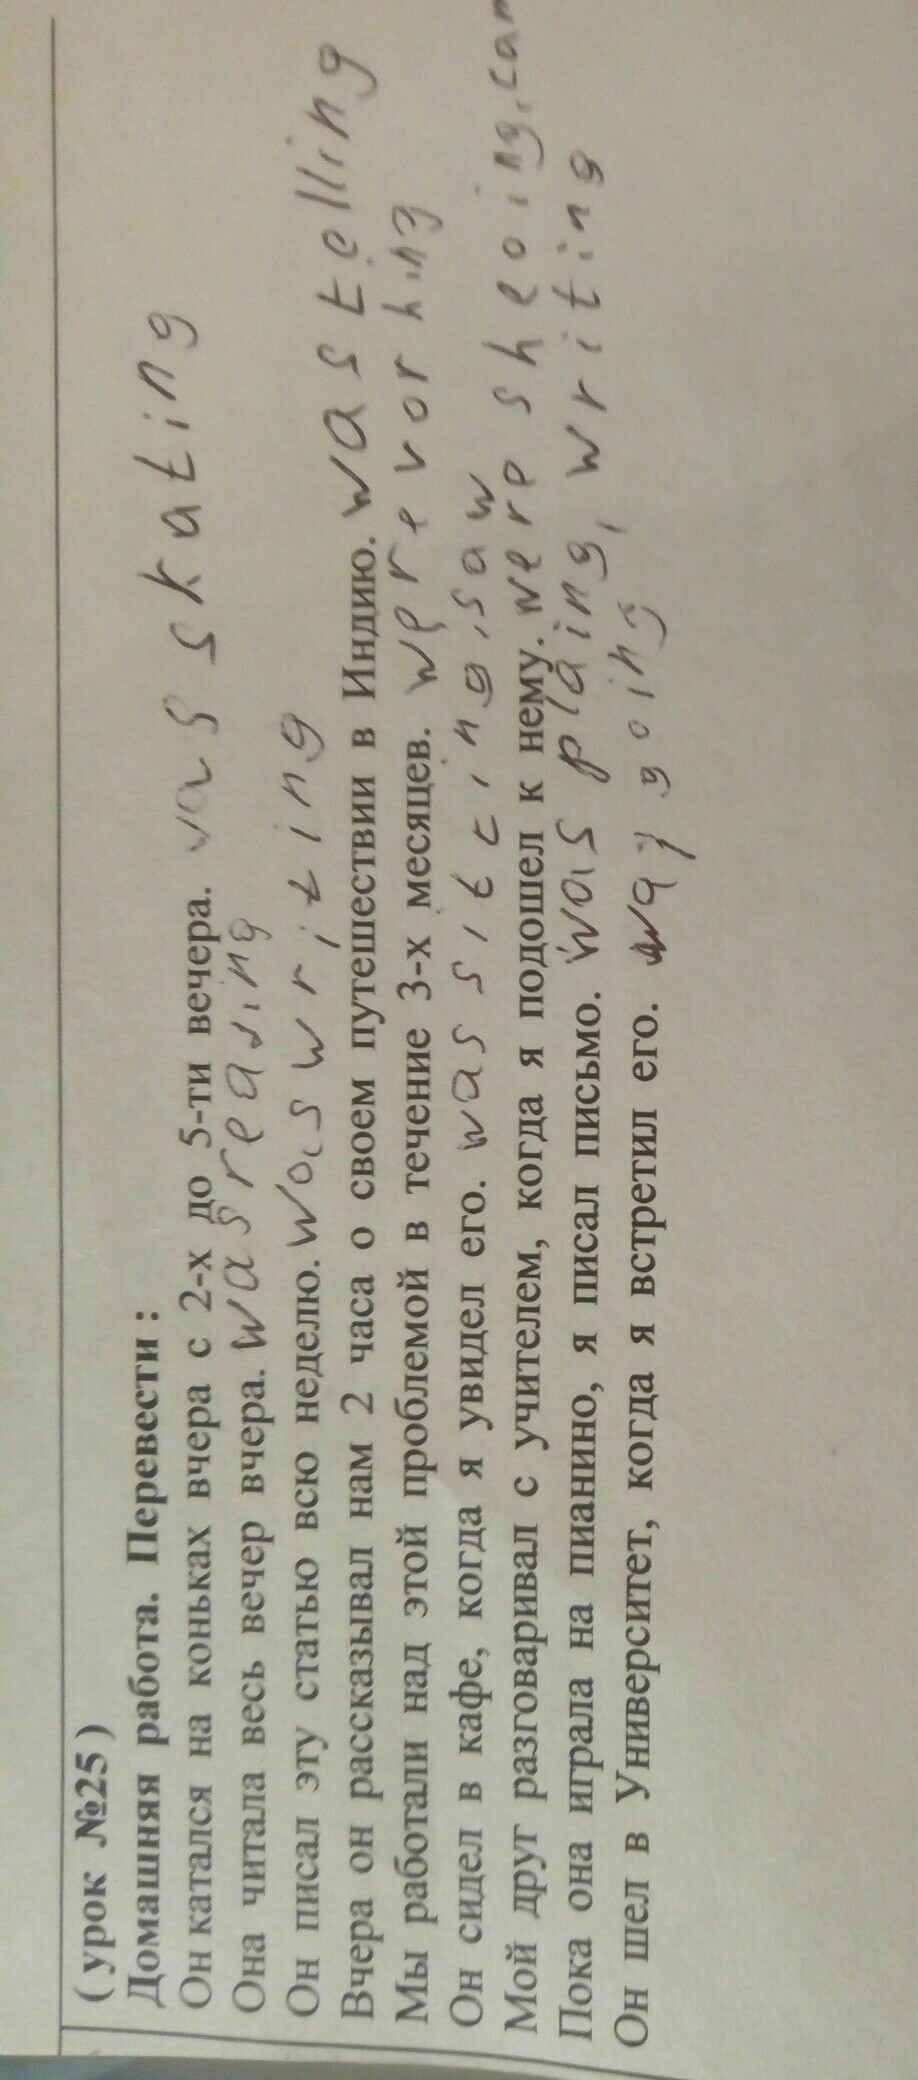 ( урок №25 )
Домашняя работа. Перевести :
Он катался на коньках вчера с 2-х до 5-ти вечера. vas skating
Она читала весь вечер вчера. was reading
Он писал эту статью всю неделю. was writing
Вчера он рассказывал нам 2 часа о своем путешествии в Индию. was telling
Мы работали над этой проблемой в течение 3-х месяцев. were vorhing
Он сидел в кафе, когда я увидел его. was sitting, saw
Мой друг разговаривал с учителем, когда я подошел к нему. were sheoing, cam
Пока она играла на пианино, я писал письмо. was plaing, writing
Он шел в Университет, когда я встретил его. way going